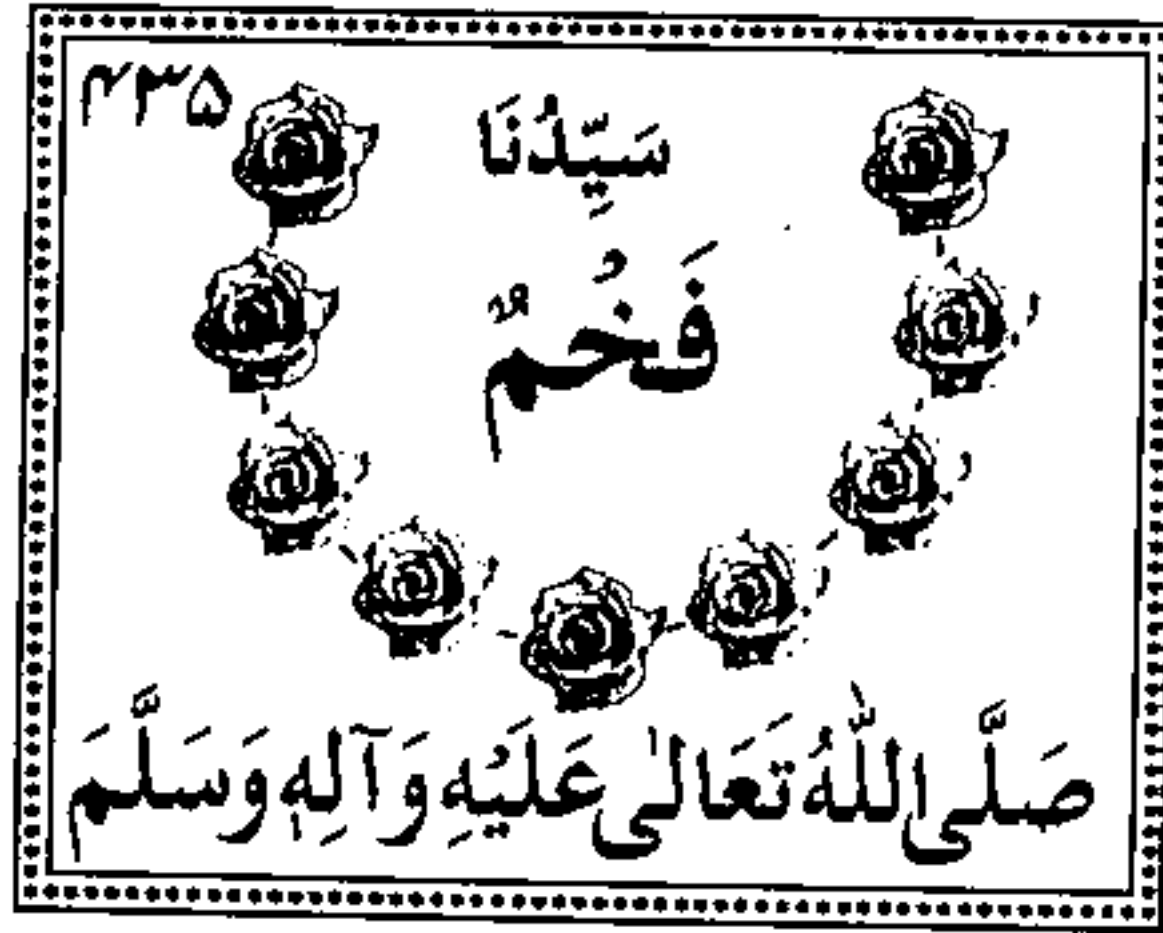 ۴۳۵
سَيِّدُنَا
فَخُمٌ
صَلَّی اللّٰهُ تَعَالٰی عَلَيْهِ وَآلِهٖ وَسَلَّمَ